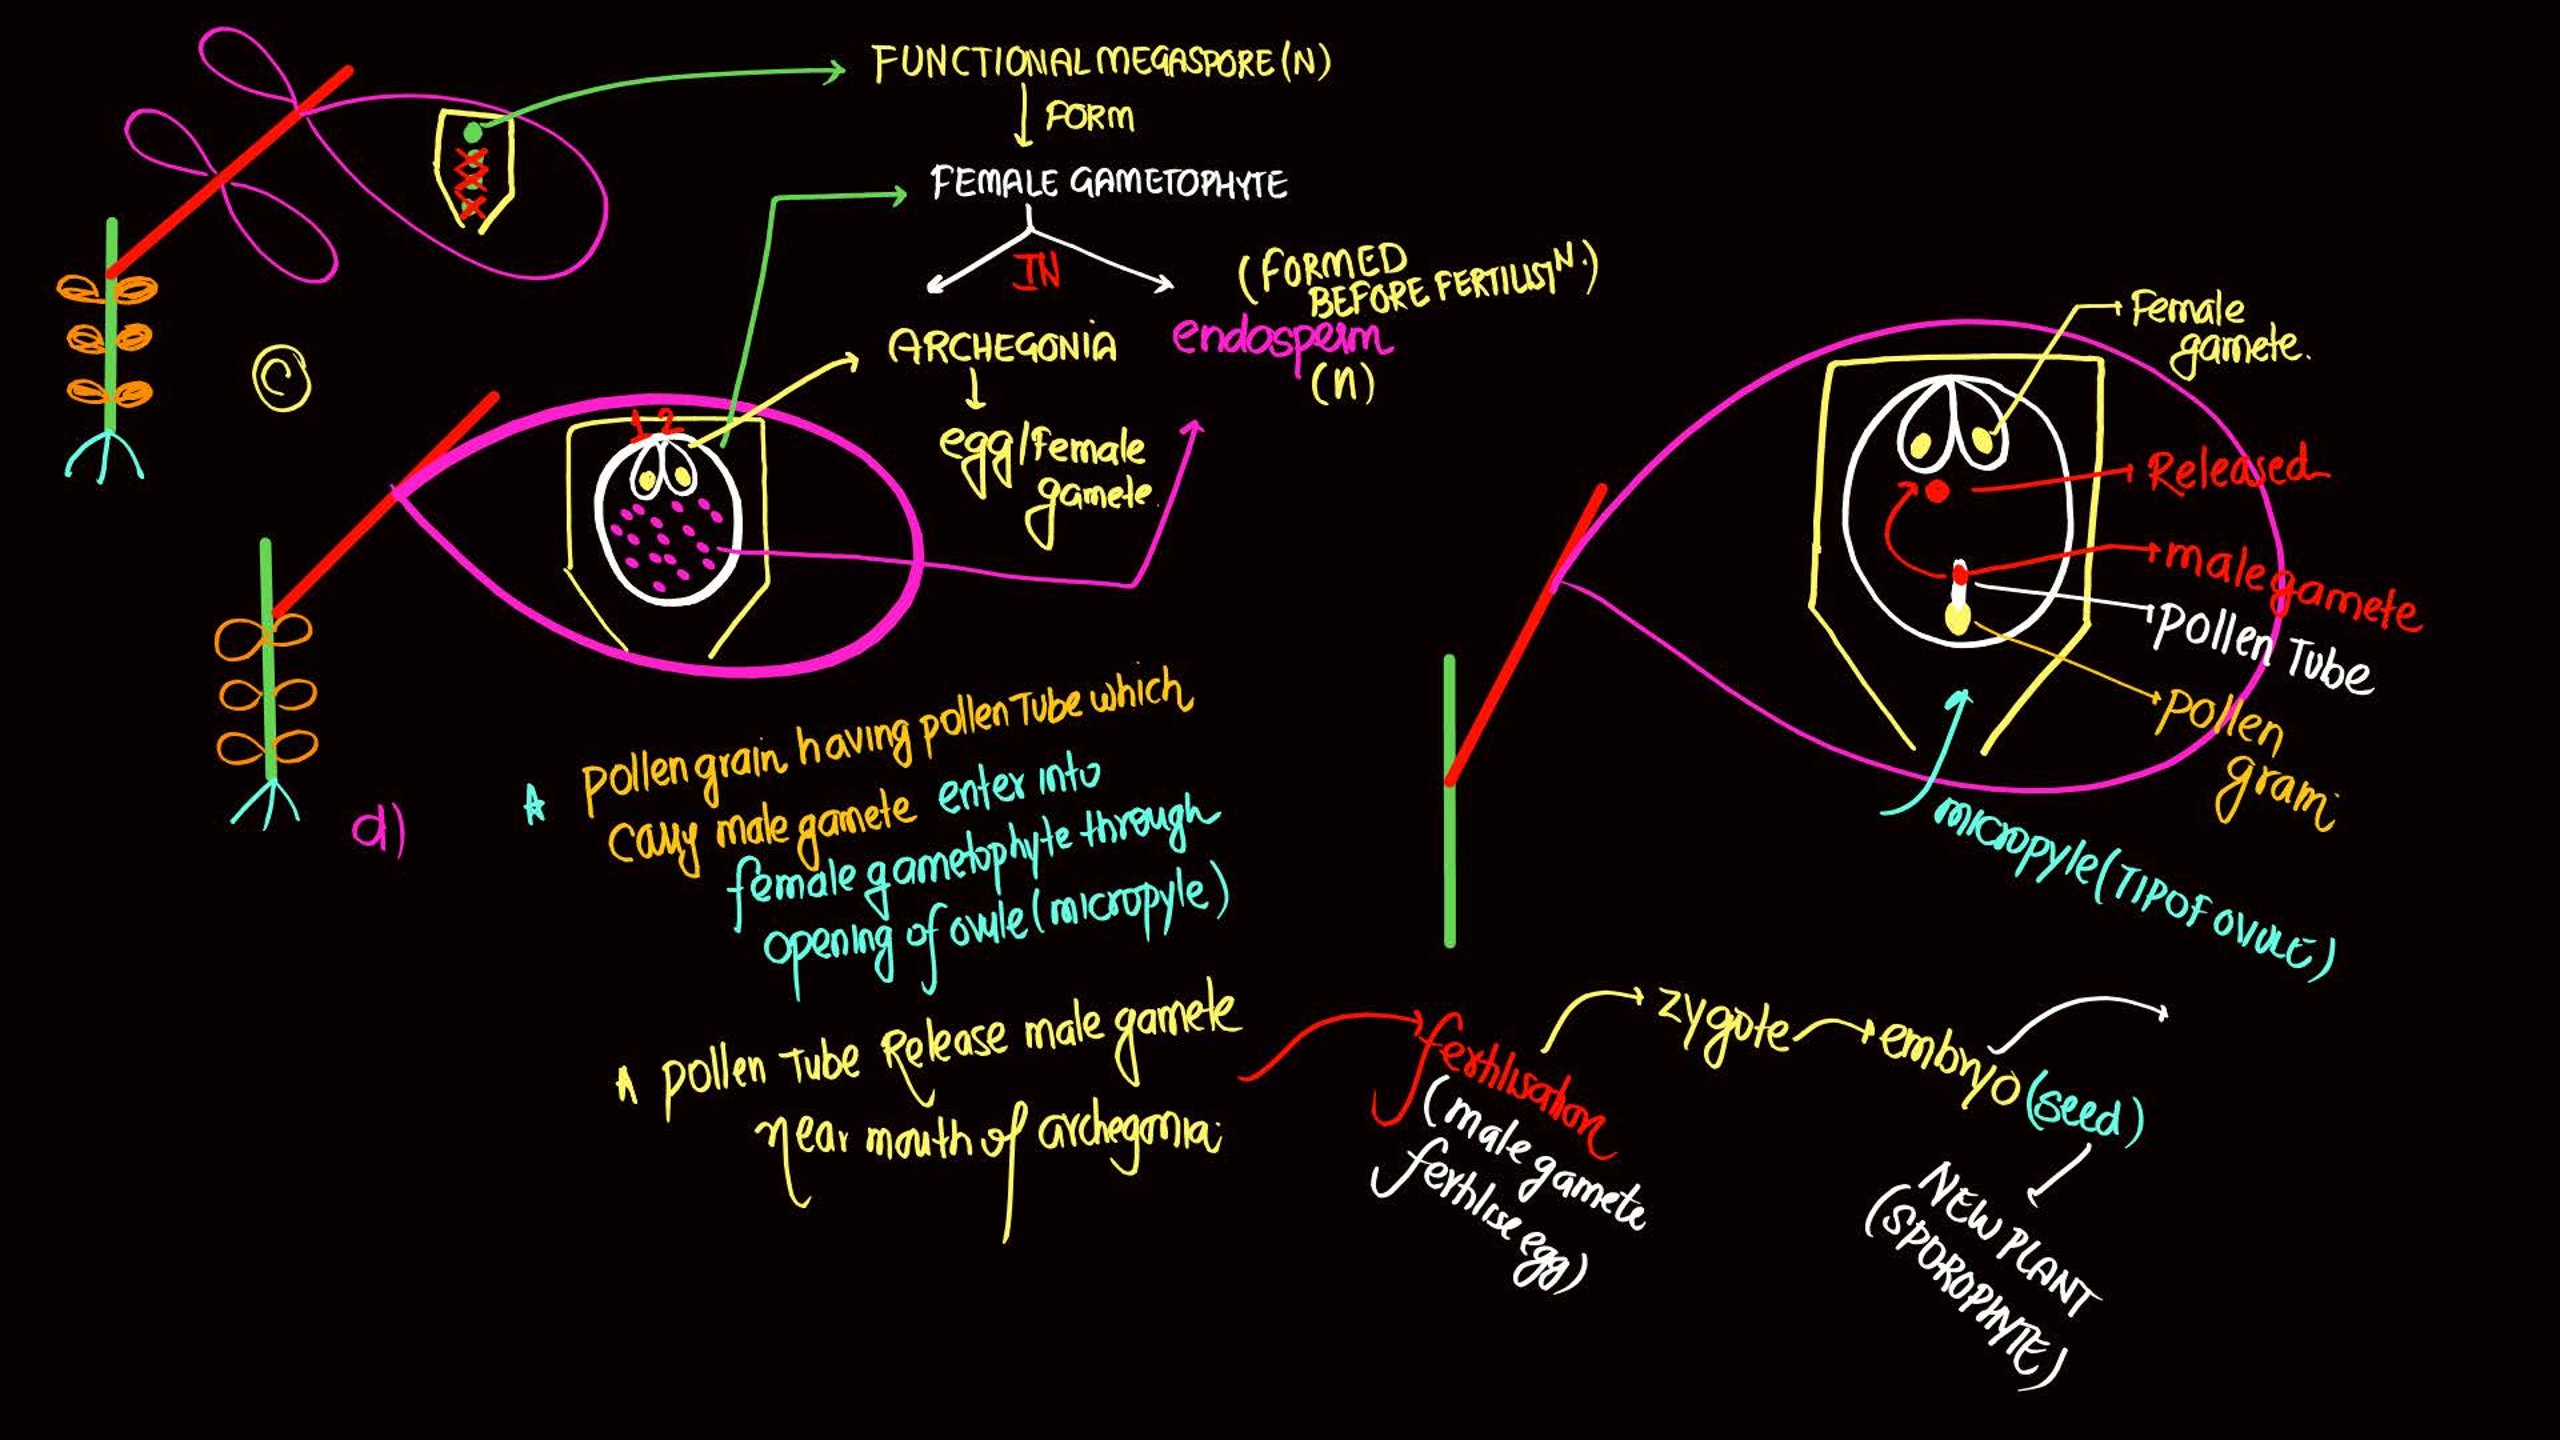 FUNCTIONAL MEGASPORE (N)
FORM
FEMALE GAMETOPHYTE
IN
(FORMED
BEFORE FERTILISTᴺ.)
ARCHEGONIA
endosperm
(n)
egg/Female
gamete.
C
1 2
Female
gamete.
Released
male gamete
pollen Tube
pollen
grain
micropyle (TIP OF OVULE)
d)
pollen grain having pollen Tube which
carry male gamete enter into
female gametophyte through
opening of ovule (micropyle)
pollen Tube Release male gamete
near mouth of archegonia
fertilisation
(male gamete
fertilise egg)
zygote
embryo (seed)
NEW PLANT
(SPOROPHYTE)